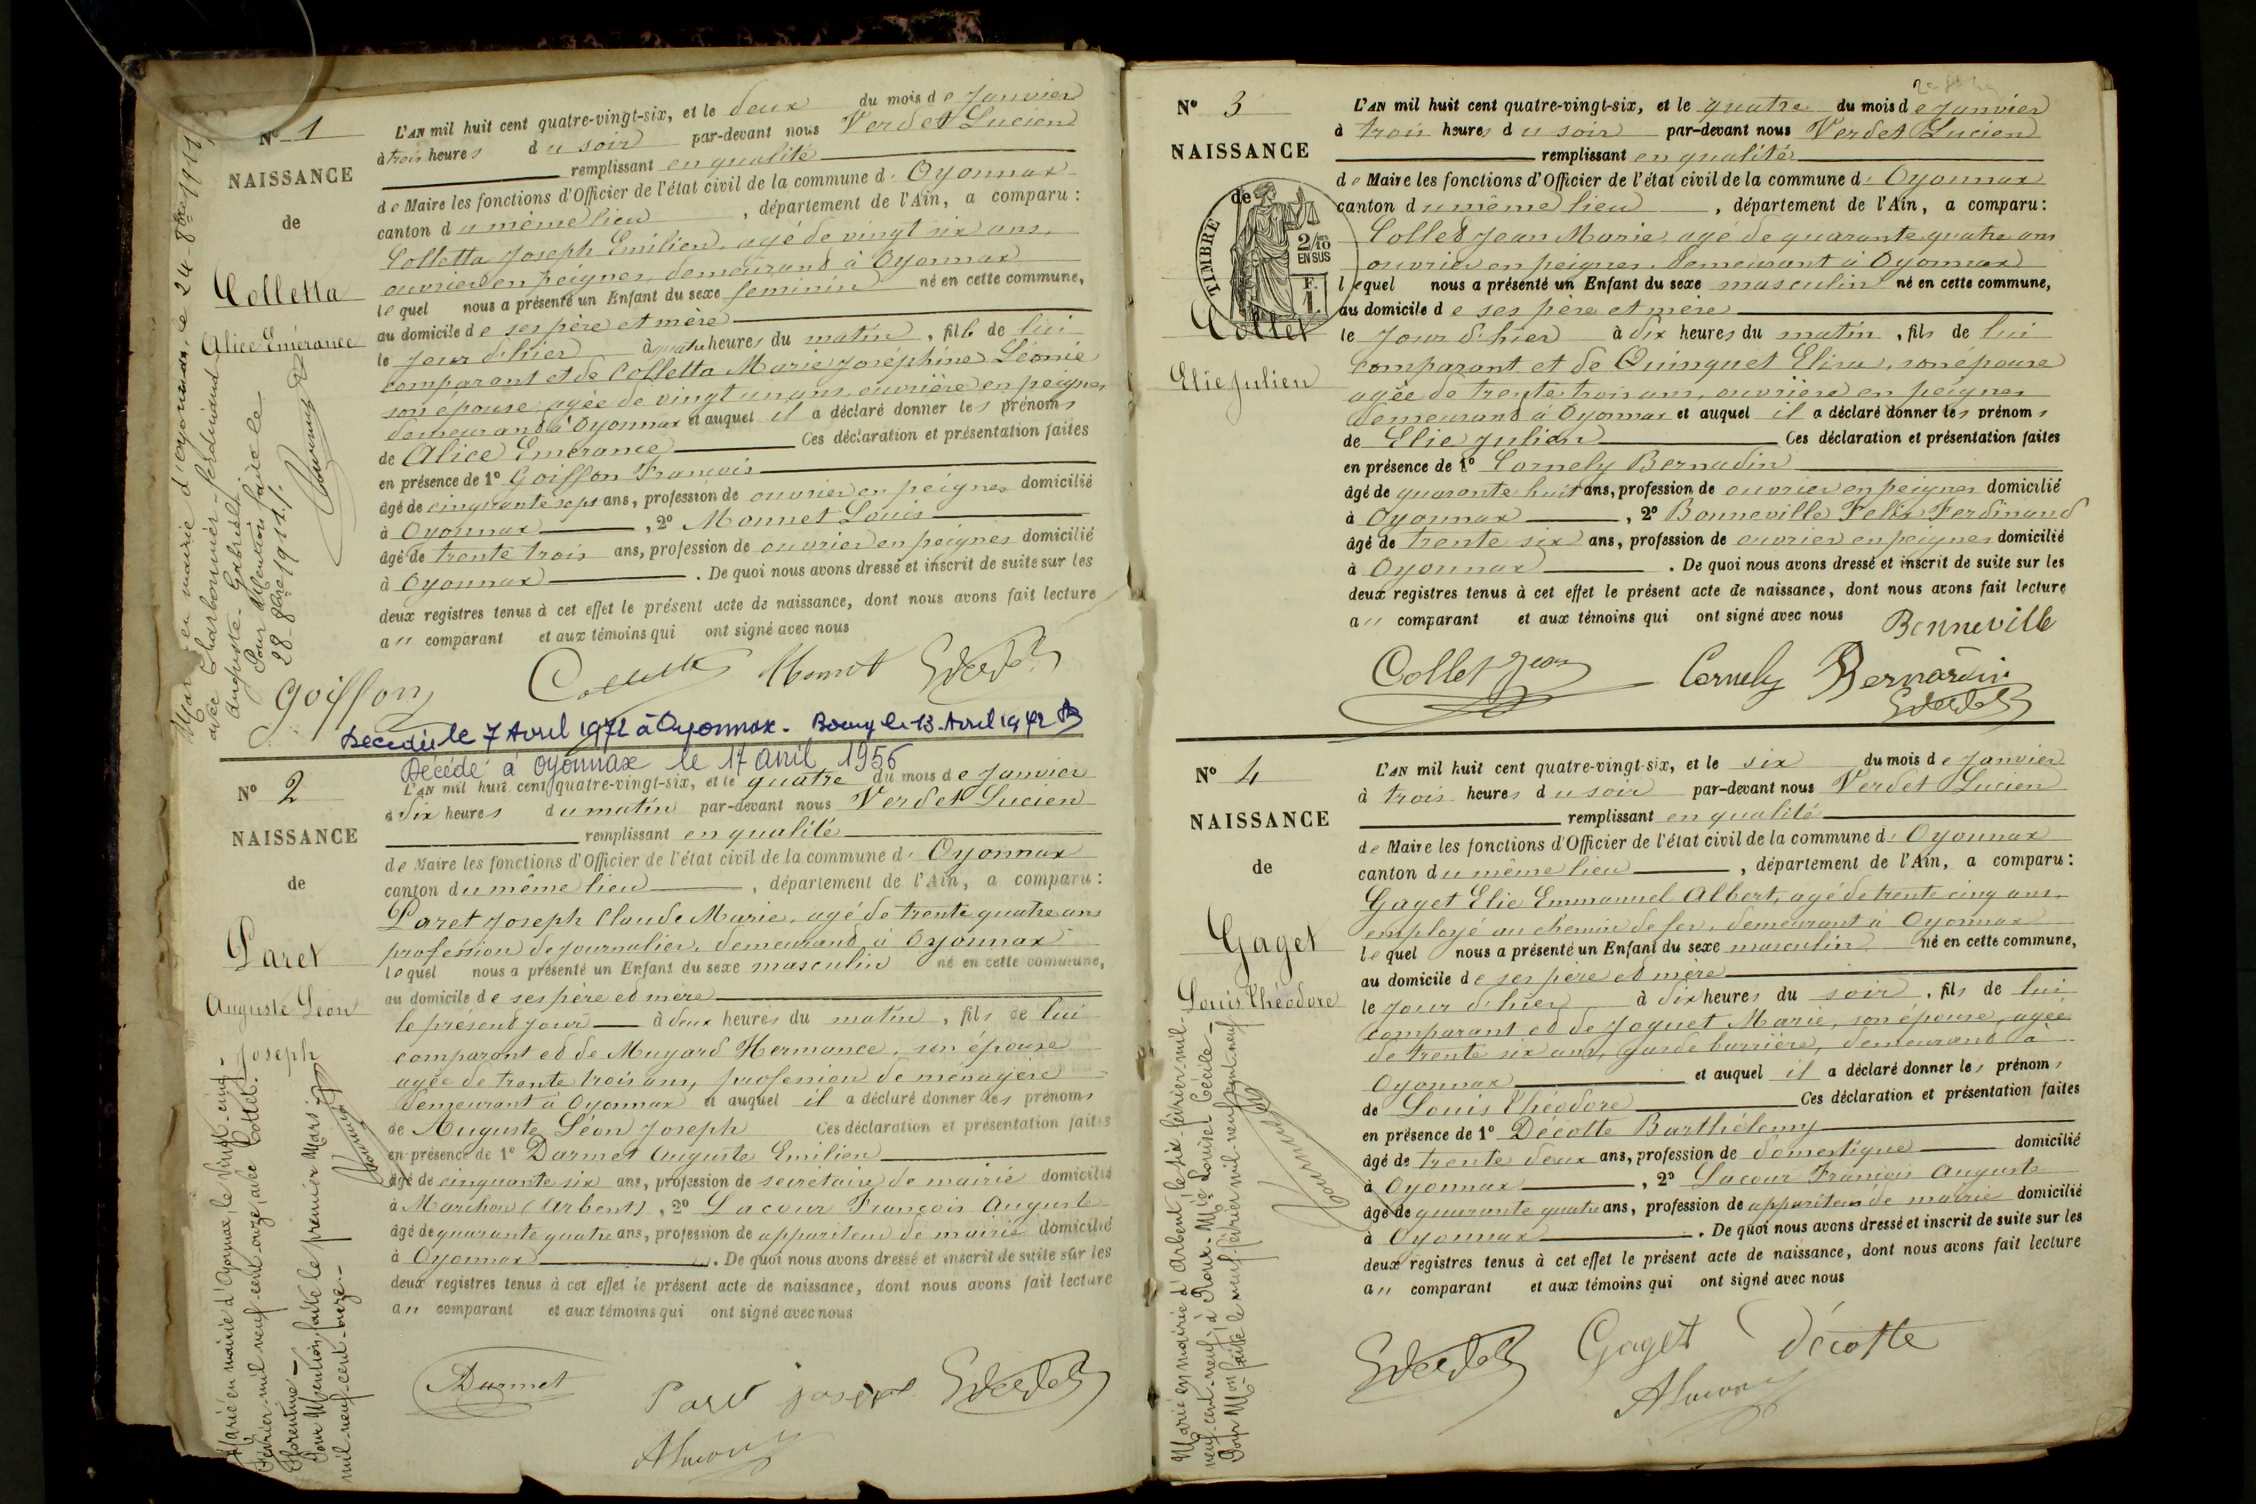 N° 1
NAISSANCE
de
Colletta
Alice Emérance
L'AN mil huit cent quatre-vingt-six, et le deux du mois de Janvier
à trois heures du soir par-devant nous Verdet Lucien
remplissant en qualité
de Maire les fonctions d'Officier de l'état civil de la commune d' Oyonnax
canton du même lieu, département de l'Ain, a comparu :
Colletta Joseph Emilien, agé de vingt six ans,
ouvrier en peignes, demeurant à Oyonnax
lequel nous a présenté un Enfant du sexe feminin né en cette commune,
au domicile de ses père et mère
le jour d'hier à quatre heures du matin, fille de lui
comparant et de Colletta Marie Joséphine Léonie
son épouse agée de vingt un ans, ouvrière en peignes,
demeurant à Oyonnax et auquel il a déclaré donner les prénoms
de Alice Emérance Ces déclaration et présentation faites
en présence de 1° Goiffon François
âgé de cinquante sept ans, profession de ouvrier en peignes domicilié
à Oyonnax, 2° Monnet Louis
âgé de trente trois ans, profession de ouvrier en peignes domicilié
à Oyonnax. De quoi nous avons dressé et inscrit de suite sur les
deux registres tenus à cet effet le présent acte de naissance, dont nous avons fait lecture
au comparant et aux témoins qui ont signé avec nous
Goiffon Colletta Monnet Verdet
Mariée en mairie d'Oyonnax, le 24 8bre 1911,
avec Charbonnier Ferdinand
Auguste Gabriel.
Pour Mention faite le
28 8bre 1911.
Décédée le 7 Avril 1972 à Oyonnax. Bourg le 13 Avril 1972
Décédé à Oyonnax le 17 avril 1956
N° 2
NAISSANCE
de
Paret
Auguste Léon
Joseph
L'AN mil huit cent quatre-vingt-six, et le quatre du mois de Janvier
à dix heures du matin par-devant nous Verdet Lucien
remplissant en qualité
de Maire les fonctions d'Officier de l'état civil de la commune d' Oyonnax
canton du même lieu, département de l'Ain, a comparu :
Paret Joseph Claude Marie, agé de trente quatre ans
profession de journalier, demeurant à Oyonnax
lequel nous a présenté un Enfant du sexe masculin né en cette commune,
au domicile de ses père et mère
le présent jour à deux heures du matin, fils de lui
comparant et de Mugard Hermance, son épouse
agée de trente trois ans, profession de ménagère
demeurant à Oyonnax et auquel il a déclaré donner les prénoms
de Auguste Léon Joseph Ces déclaration et présentation faites
en présence de 1° Darmet Auguste Emilien
âgé de cinquante six ans, profession de secrétaire de mairie domicilié
à Marchon (Arbent), 2° Lacour François Auguste
âgé de quarante quatre ans, profession de appariteur de mairie domicilié
à Oyonnax. De quoi nous avons dressé et inscrit de suite sur les
deux registres tenus à cet effet le présent acte de naissance, dont nous avons fait lecture
au comparant et aux témoins qui ont signé avec nous
Darmet Paret Joseph Verdet
ALacour
Marié en mairie d'Oyonnax, le vingt-cinq
Février mil neuf cent onze, avec Collet
Florentine
Pour Mention faite le premier Mars
mil neuf cent onze
N° 3
NAISSANCE
de
TIMBRE
2/10 EN SUS
F. 1.
Collet
Elie Julien
L'AN mil huit cent quatre-vingt-six, et le quatre du mois de Janvier
à trois heures du soir par-devant nous Verdet Lucien
remplissant en qualité
de Maire les fonctions d'Officier de l'état civil de la commune d' Oyonnax
canton du même lieu, département de l'Ain, a comparu :
Collet Jean Marie, agé de quarante quatre ans
ouvrier en peignes, demeurant à Oyonnax
lequel nous a présenté un Enfant du sexe masculin né en cette commune,
au domicile de ses père et mère
le jour d'hier à dix heures du matin, fils de lui
comparant et de Quinquet Elisa, son épouse
agée de trente trois ans, ouvrière en peignes
demeurant à Oyonnax et auquel il a déclaré donner les prénoms
de Elie Julien Ces déclaration et présentation faites
en présence de 1° Cornely Bernadin
âgé de quarante huit ans, profession de ouvrier en peignes domicilié
à Oyonnax, 2° Bonneville Felix Ferdinand
âgé de trente six ans, profession de ouvrier en peignes domicilié
à Oyonnax. De quoi nous avons dressé et inscrit de suite sur les
deux registres tenus à cet effet le présent acte de naissance, dont nous avons fait lecture
au comparant et aux témoins qui ont signé avec nous
Bonneville
Collet Jean Cornely Bernardin
Verdet
N° 4
NAISSANCE
de
Gaget
Louis Théodore
L'AN mil huit cent quatre-vingt-six, et le six du mois de Janvier
à trois heures du soir par-devant nous Verdet Lucien
remplissant en qualité
de Maire les fonctions d'Officier de l'état civil de la commune d' Oyonnax
canton du même lieu, département de l'Ain, a comparu :
Gaget Elie Emmanuel Albert, agé de trente cinq ans,
employé au chemin de fer, demeurant à Oyonnax
lequel nous a présenté un Enfant du sexe masculin né en cette commune,
au domicile de ses père et mère
le jour d'hier à dix heures du soir, fils de lui
comparant et de Joguet Marie, son épouse, agée
de trente six ans, garde barrière, demeurant à
Oyonnax et auquel il a déclaré donner les prénoms
de Louis Théodore Ces déclaration et présentation faites
en présence de 1° Decotte Barthélemy
âgé de trente deux ans, profession de domestique domicilié
à Oyonnax, 2° Lacour François Auguste
âgé de quarante quatre ans, profession de appariteur de mairie domicilié
à Oyonnax. De quoi nous avons dressé et inscrit de suite sur les
deux registres tenus à cet effet le présent acte de naissance, dont nous avons fait lecture
au comparant et aux témoins qui ont signé avec nous
Verdet Gaget Décotte
ALacour
Marié en mairie d'Arbent, le six février mil
neuf cent neuf, à Roux Mie Louise Cécile
Pour Mon faite le neuf février mil neuf cent neuf